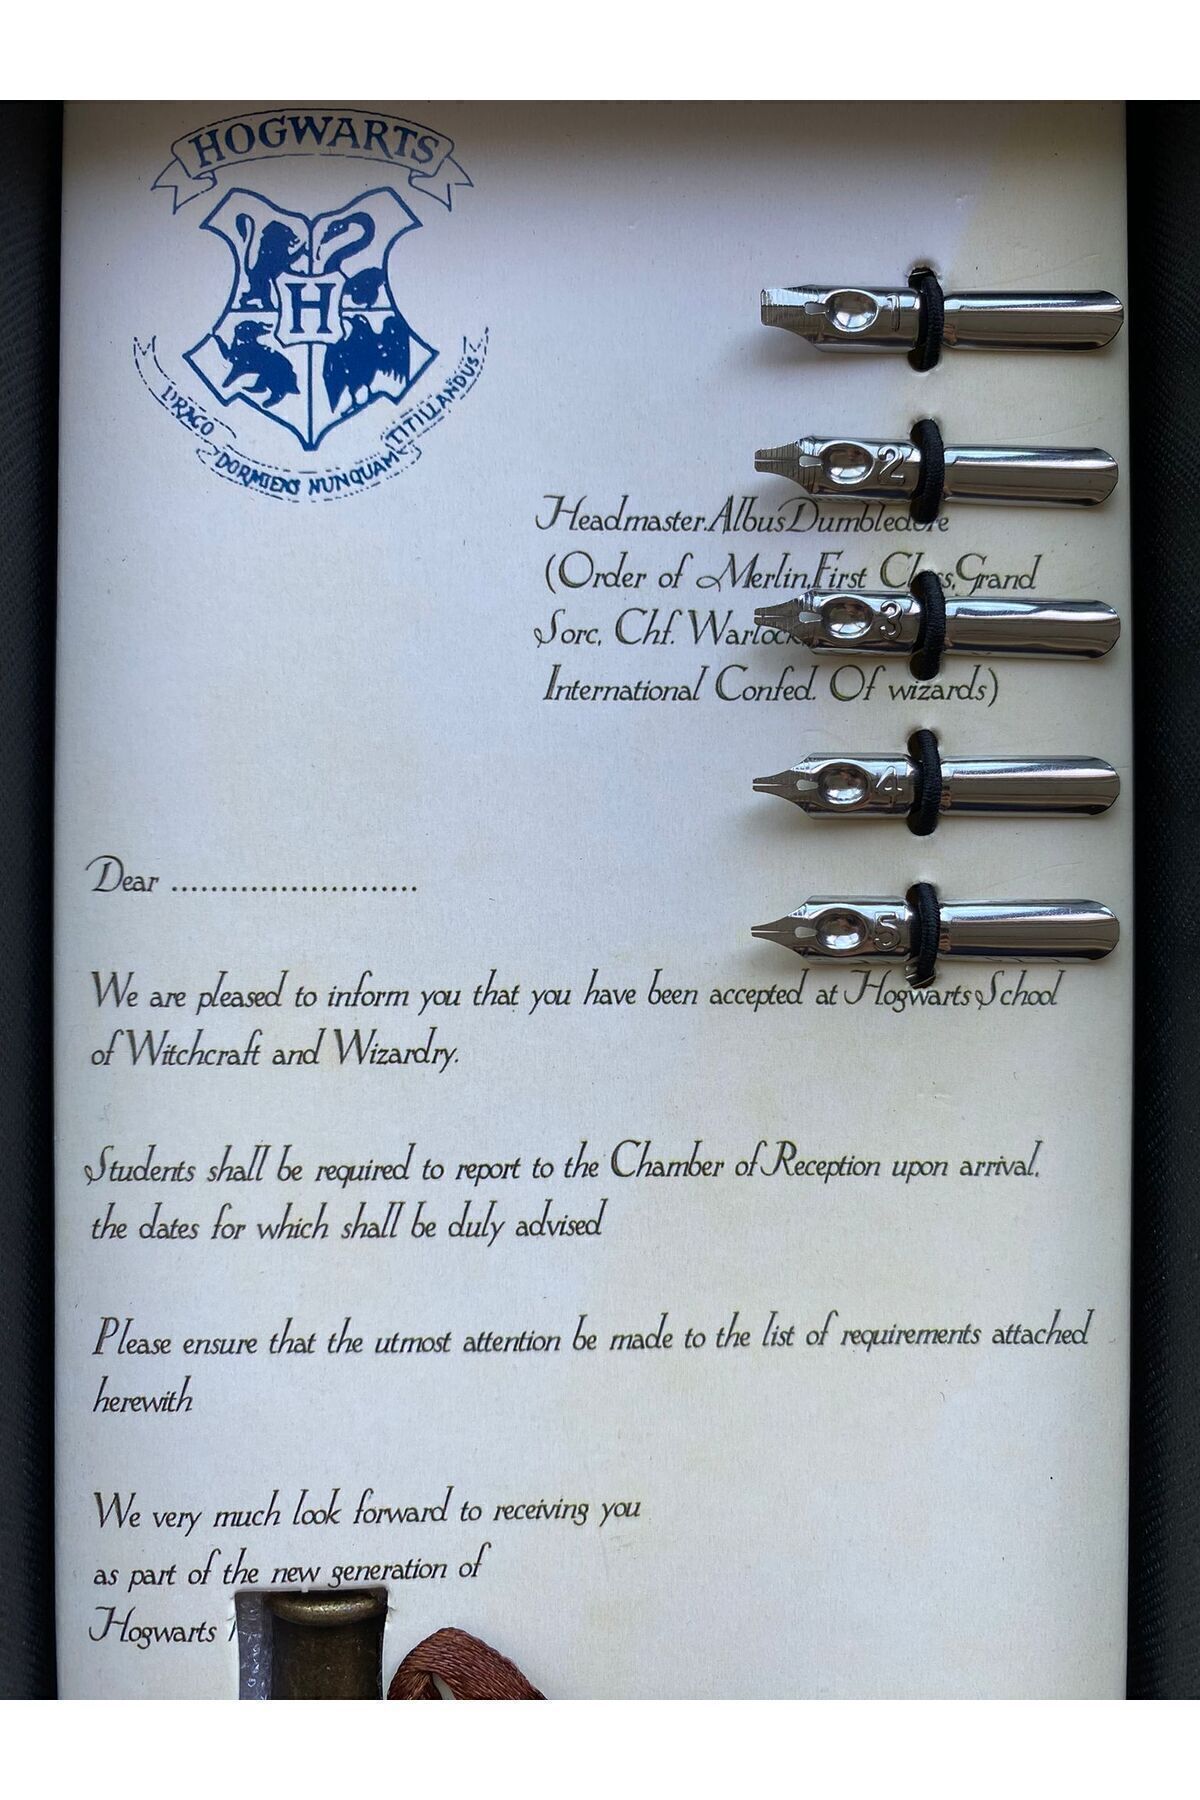 HOGWARTS
H
DRACO
DORMIENS NUNQUAM
TITILLANDUS
1
2
Headmaster.Albus Dumbledore
(Order of Merlin,First Class,Grand
3
Sorc, Chf. Warlock
International Confed. Of wizards)
4
Dear .........................
5
We are pleased to inform you that you have been accepted at Hogwarts School
of Witchcraft and Wizardry.
Students shall be required to report to the Chamber of Reception upon arrival,
the dates for which shall be duly advised
Please ensure that the utmost attention be made to the list of requirements attached
herewith
We very much look forward to receiving you
as part of the new generation of
Hogwarts